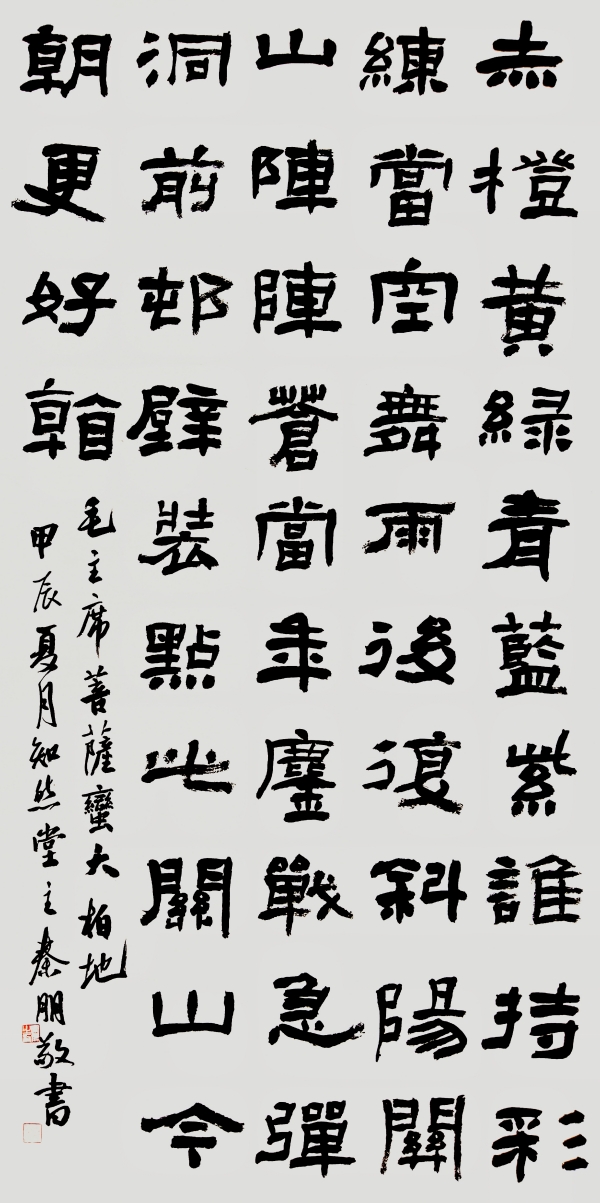 赤橙黄緑青藍紫誰持彩
練當空舞雨後復斜陽關
山陣陣蒼當年鏖戰急彈
洞前邨壁裝點此關山今
朝更好看
毛主席菩薩蠻大柏地
甲辰夏月知然堂主秦朋敬書